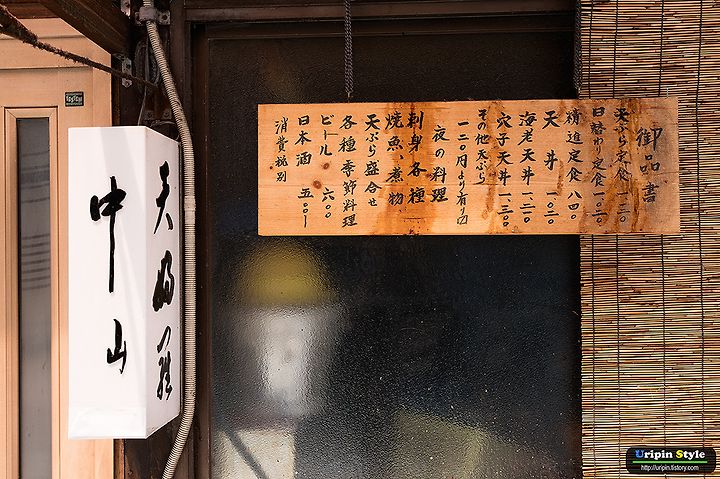 御品書
天ぷら定食 一一二〇
日替わり定食 一〇二〇
精進定食 八四〇
天丼 一〇二〇
海老天丼 一二一〇
穴子天丼 一、三〇〇
その他天ぷら
一二〇円より有り〼
夜の料理
刺身各種
焼魚、煮物
天ぷら盛合せ
各種季節料理
ビール 六〇〇
日本酒 五〇〇〜
消費税別
天婦羅
中山
Uripin Style
http://uripin.tistory.com